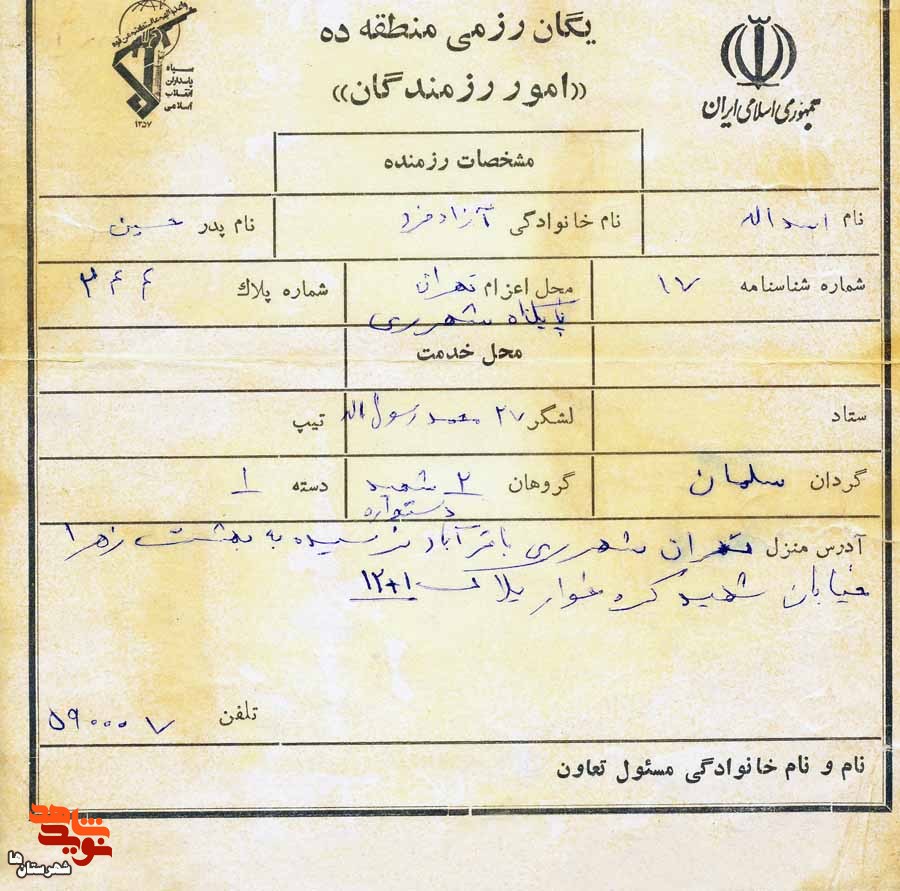 یگان رزمی منطقه ده
«امور رزمندگان»
جمهوری اسلامی ایران
سپاه
پاسداران
انقلاب
اسلامی
۱۳۵۷
مشخصات رزمنده
نام اسداله نام خانوادگی آزادفرد نام پدر حسین
شماره شناسنامه ۱۷ محل اعزام تهران شماره پلاك ۳۴۴
پایگاه شهرری
محل خدمت
ستاد لشگر ۲۷ محمد رسول اله تیپ
گردان سلمان گروهان ۲ شهید دسته ۱
دستواره
آدرس منزل تهران شهرری باقرآباد نرسیده به بهشت زهرا
خیابان شهید گره خوار پلاک ۱۲+۱
تلفن ۵۹۰۰۰۷
نام و نام خانوادگی مسئول تعاون
نوید شاهد
شهرستان‌ها